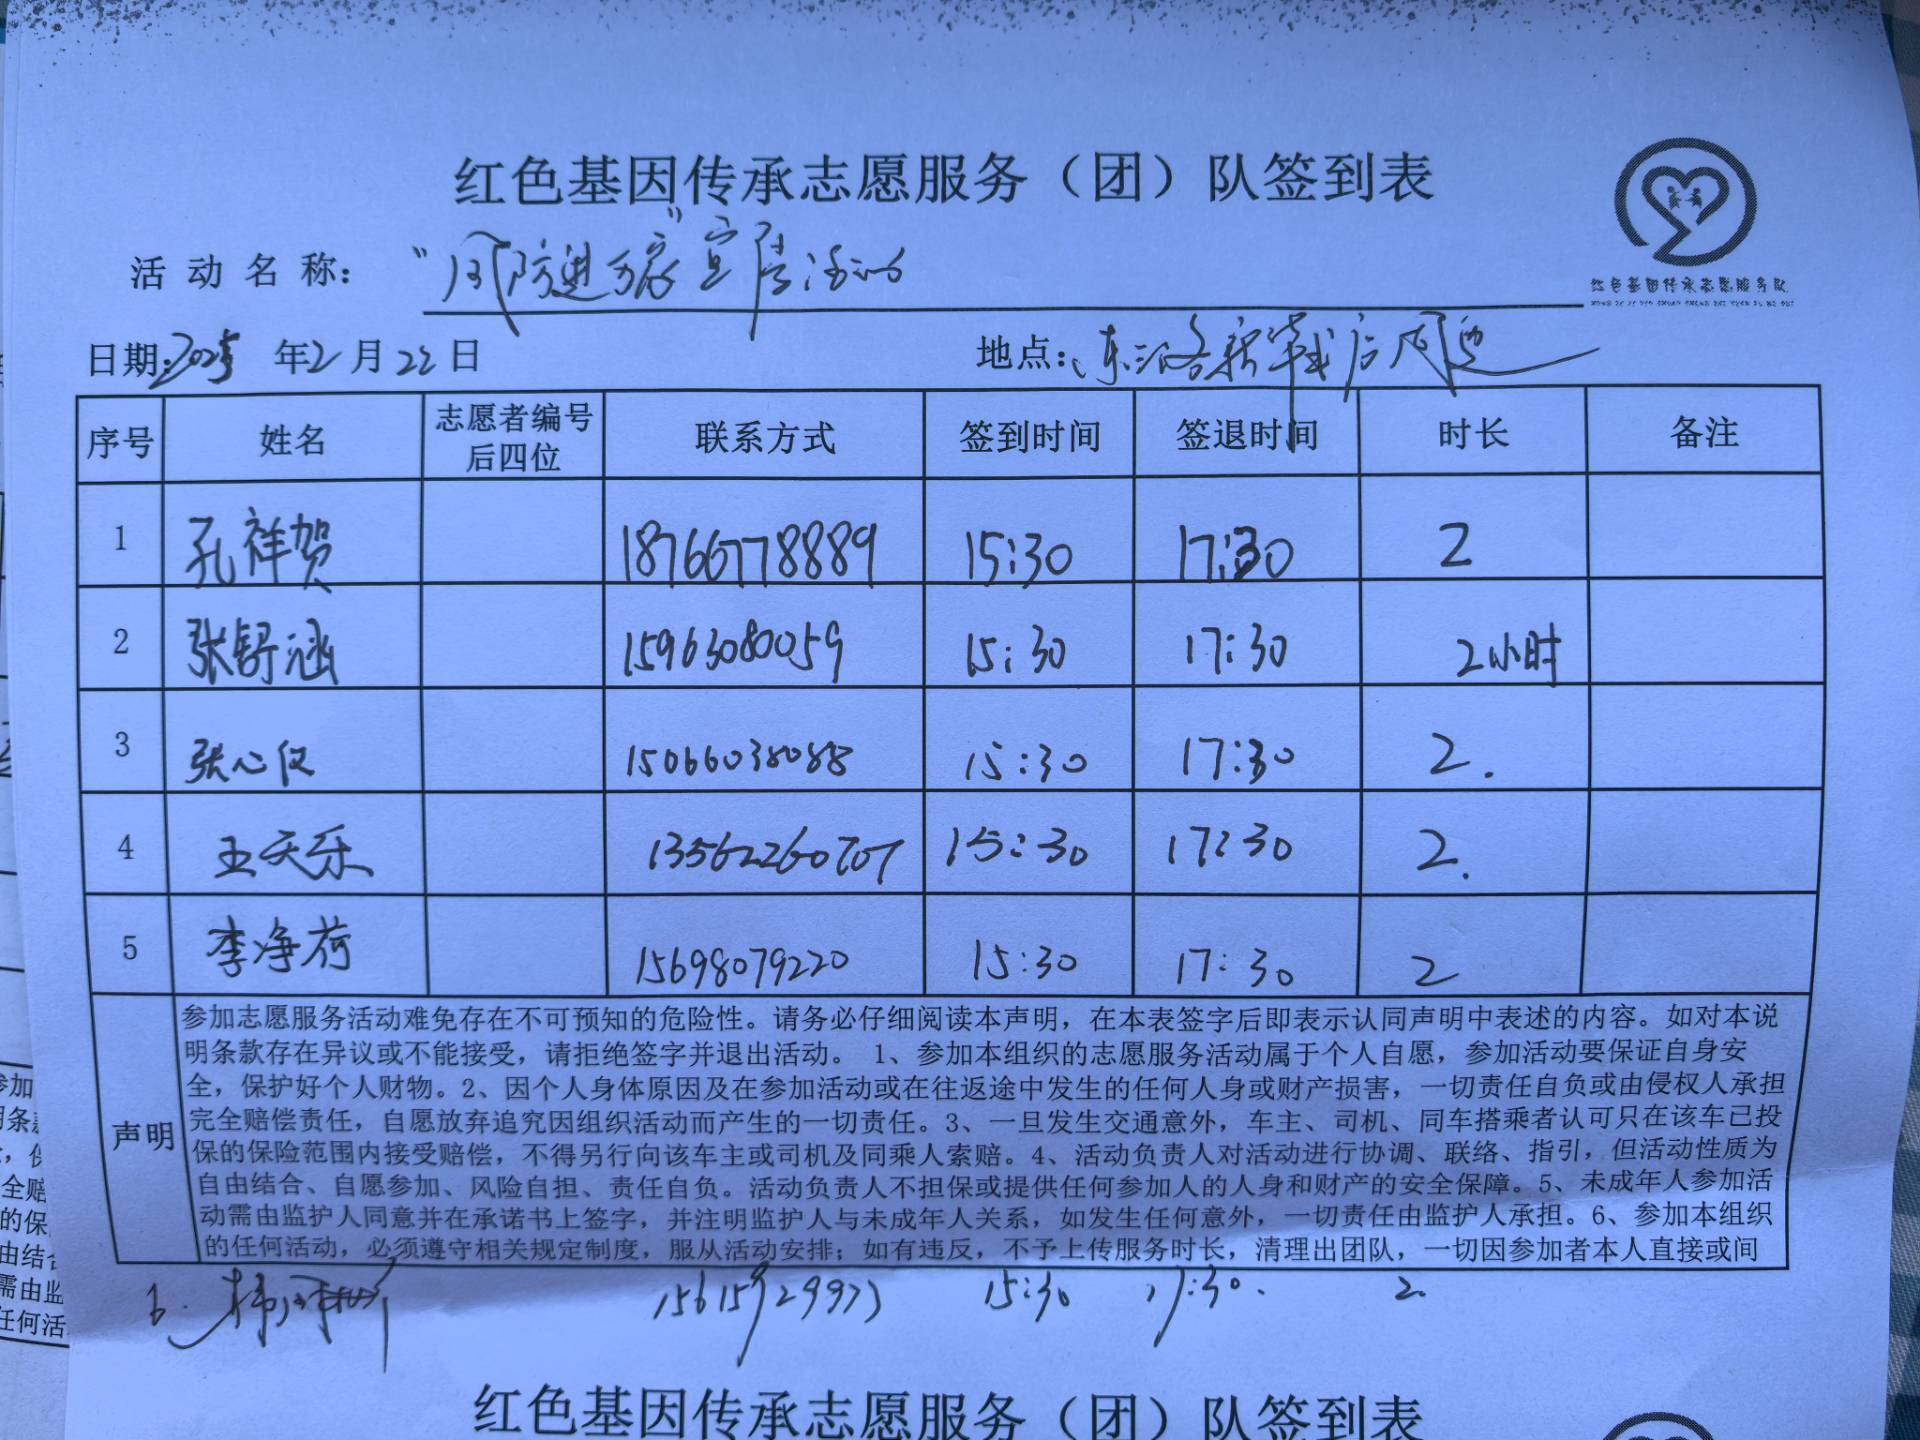 红色基因传承志愿服务（团）队签到表
红色基因传承志愿服务队
活动名称： "国防进万家"宣传活动
日期：2025年2月22日 地点：
序号 姓名 志愿者编号后四位 联系方式 签到时间 签退时间 时长 备注
1 孔祥贺 18766778889 15:30 17:30 2
2 张舒涵 15963080059 15:30 17:30 2小时
3 张心仪 15066038088 15:30 17:30 2.
4 王天乐 13562260707 15:30 17:30 2.
5 李净荷 15698079220 15:30 17:30 2
声明
参加志愿服务活动难免存在不可预知的危险性。请务必仔细阅读本声明，在本表签字后即表示认同声明中表述的内容。如对本说
明条款存在异议或不能接受，请拒绝签字并退出活动。 1、参加本组织的志愿服务活动属于个人自愿，参加活动要保证自身安
全，保护好个人财物。2、因个人身体原因及在参加活动或在往返途中发生的任何人身或财产损害，一切责任自负或由侵权人承担
完全赔偿责任，自愿放弃追究因组织活动而产生的一切责任。3、一旦发生交通意外，车主、司机、同车搭乘者认可只在该车已投
保的保险范围内接受赔偿，不得另行向该车主或司机及同乘人索赔。4、活动负责人对活动进行协调、联络、指引，但活动性质为
自由结合、自愿参加、风险自担、责任自负。活动负责人不担保或提供任何参加人的人身和财产的安全保障。5、未成年人参加活
动需由监护人同意并在承诺书上签字，并注明监护人与未成年人关系，如发生任何意外，一切责任由监护人承担。6、参加本组织
的任何活动，必须遵守相关规定制度，服从活动安排；如有违反，不予上传服务时长，清理出团队，一切因参加者本人直接或间
6. 15:30 17:30. 2.
红色基因传承志愿服务（团）队签到表